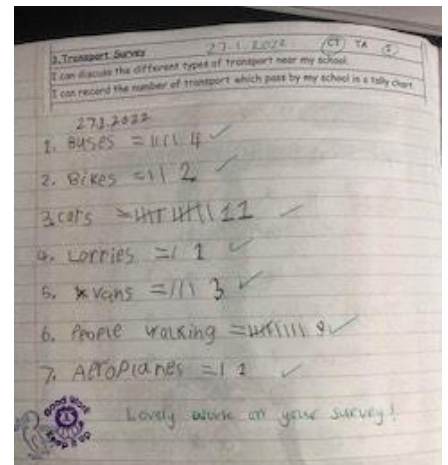 3. Transport Survey 27.1.2022 CT TA S
I can discuss the different types of transport near my school.
I can record the number of transport which pass by my school in a tally chart.
27.1.2022
1. Buses = |||| 4
2. Bikes = || 2
3. cars = 11
4. Lorries = | 1
5. vans = ||| 3
6. People walking = 9
7. Aeroplanes = | 1
Good Work
Keep it up
Lovely work on your survey!